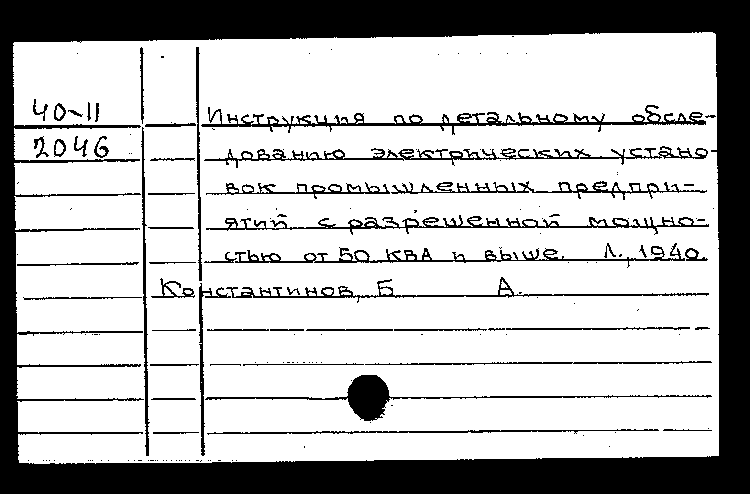 40-11
Инструкция по детальному обсле-
2046
дованию электрических устано-
вок промышленных предпри-
ятий с разрешенной мощно-
стью от 50 КВА и выше. Л., 1940.
Константинов, Б А.